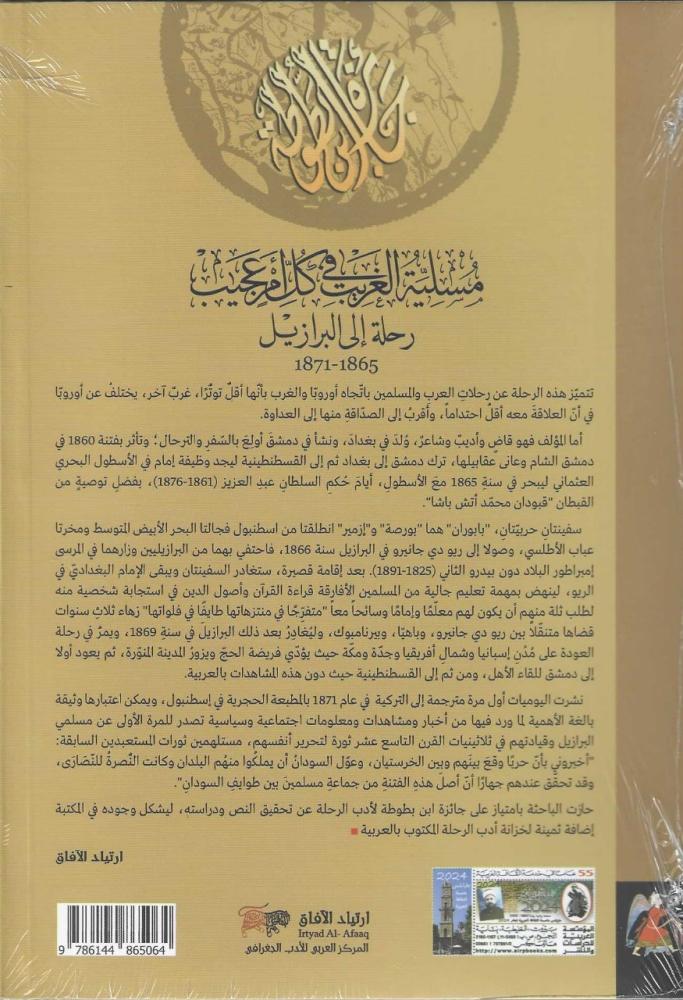 جائزة ابن بطوطة
مُسْلِيَّةُ الغَرِيبِ فِي كُلِّ أَمْرٍ عَجِيب
رحلة إلى البرازيل
1871-1865
تتميّز هذه الرحلة عن رحلاتِ العرب والمسلمين باتّجاه أوروبّا والغرب بأنّها أقلُّ توتّرًا، غربٌ آخر، يختلفُ عن أوروبّا
في أنّ العلاقةَ معه أقلُّ احتدامًا، وأقربُ إلى الصدّاقةِ منها إلى العداوة.
أما المؤلف فهو قاضٍ وأديبٌ وشاعرٌ، وُلدَ في بغدادَ، ونشأ في دمشقَ أُولِعَ بالسّفرِ والترحال؛ وتأثر بفتنة 1860 في
دمشق الشام وعانى عقابيلها، ترك دمشق إلى بغداد ثم إلى القسطنطينية ليجد وظيفة إمام في الأسطول البحري
العثماني ليبحر في سنةِ 1865 معَ الأسطولِ، أيامَ حُكمِ السلطانِ عبدِ العزيز (1861-1876)، بفضلِ توصيةٍ من
القبطان "قبودان محمّد أتش باشا".
سفينتانِ حربيّتانِ، "بابوران" هما "بورصة" و"إزمير" انطلقتا من اسطنبول فجالتا البحر الأبيض المتوسط ومخرتا
عباب الأطلسي، وصولا إلى ريو دي جانيرو في البرازيل سنة 1866، فاحتفي بهما من البرازيليين وزارهما في المرسى
إمبراطور البلاد دون بيدرو الثاني (1825-1891). بعد إقامة قصيرة، ستغادر السفينتان ويبقى الإمام البغداديّ في
الريو، لينهض بمهمة تعليم جالية من المسلمين الأفارقة قراءة القرآن وأصول الدين في استجابة شخصية منه
لطلب ثلة منهم أن يكون لهم معلّمًا وإمامًا وسائحاً معاً "متفرّجًا في منتزهاتها طايفًا في فلواتها" زهاء ثلاثِ سنوات
قضاها متنقلًا بين ريو دي جانيرو، وباهيّا، وبيرنامبوك، وليُغادِرُ بعد ذلك البرازيلَ في سنةِ 1869، ويمرّ في رحلة
العودة على مُدُن إسبانيا وشمالِ أفريقيا وجدّة ومكّة حيث يؤدّي فريضة الحجّ ويزورُ المدينة المنوّرة، ثم يعود أولا
إلى دمشق للقاء الأهل، ومن ثم إلى القسطنطينية حيث دون هذه المشاهدات بالعربية.
نشرت اليوميات أول مرة مترجمة إلى التركية في عام 1871 بالمطبعة الحجرية في إسطنبول، ويمكن اعتبارها وثيقة
بالغة الأهمية لما ورد فيها من أخبار ومشاهدات ومعلومات اجتماعية وسياسية تصدر للمرة الأولى عن مسلمي
البرازيل وقيادتهم في ثلاثينيات القرن التاسع عشر ثورة لتحرير أنفسهم، مستلهمين ثورات المستعبدين السابقة:
"أخبروني بأنّ حربًا وقعَ بينَهم وبين الخرستيان، وعوّل السودانُ أن يملكُوا منهُم البلدان وكانت النُصرةُ للنّصَارَى،
وقد تحقّق عندهم جهارًا أنّ أصل هذهِ الفتنةِ من جماعةِ مسلمينَ بين طوايفِ السودانِ".
حازت الباحثة بامتياز على جائزة ابن بطوطة لأدب الرحلة عن تحقيق النص ودراسته، ليشكل وجوده في المكتبة
إضافة ثمينة لخزانة أدب الرحلة المكتوب بالعربية
ارتياد الآفاق
ارتياد الآفاق
Irtyad Al- Afaaq
المركز العربي للأدب الجغرافي
2024
55
المؤسسة
العربية
للدراسات
والنشر
http://www.airpbooks.com
9 786144 865064